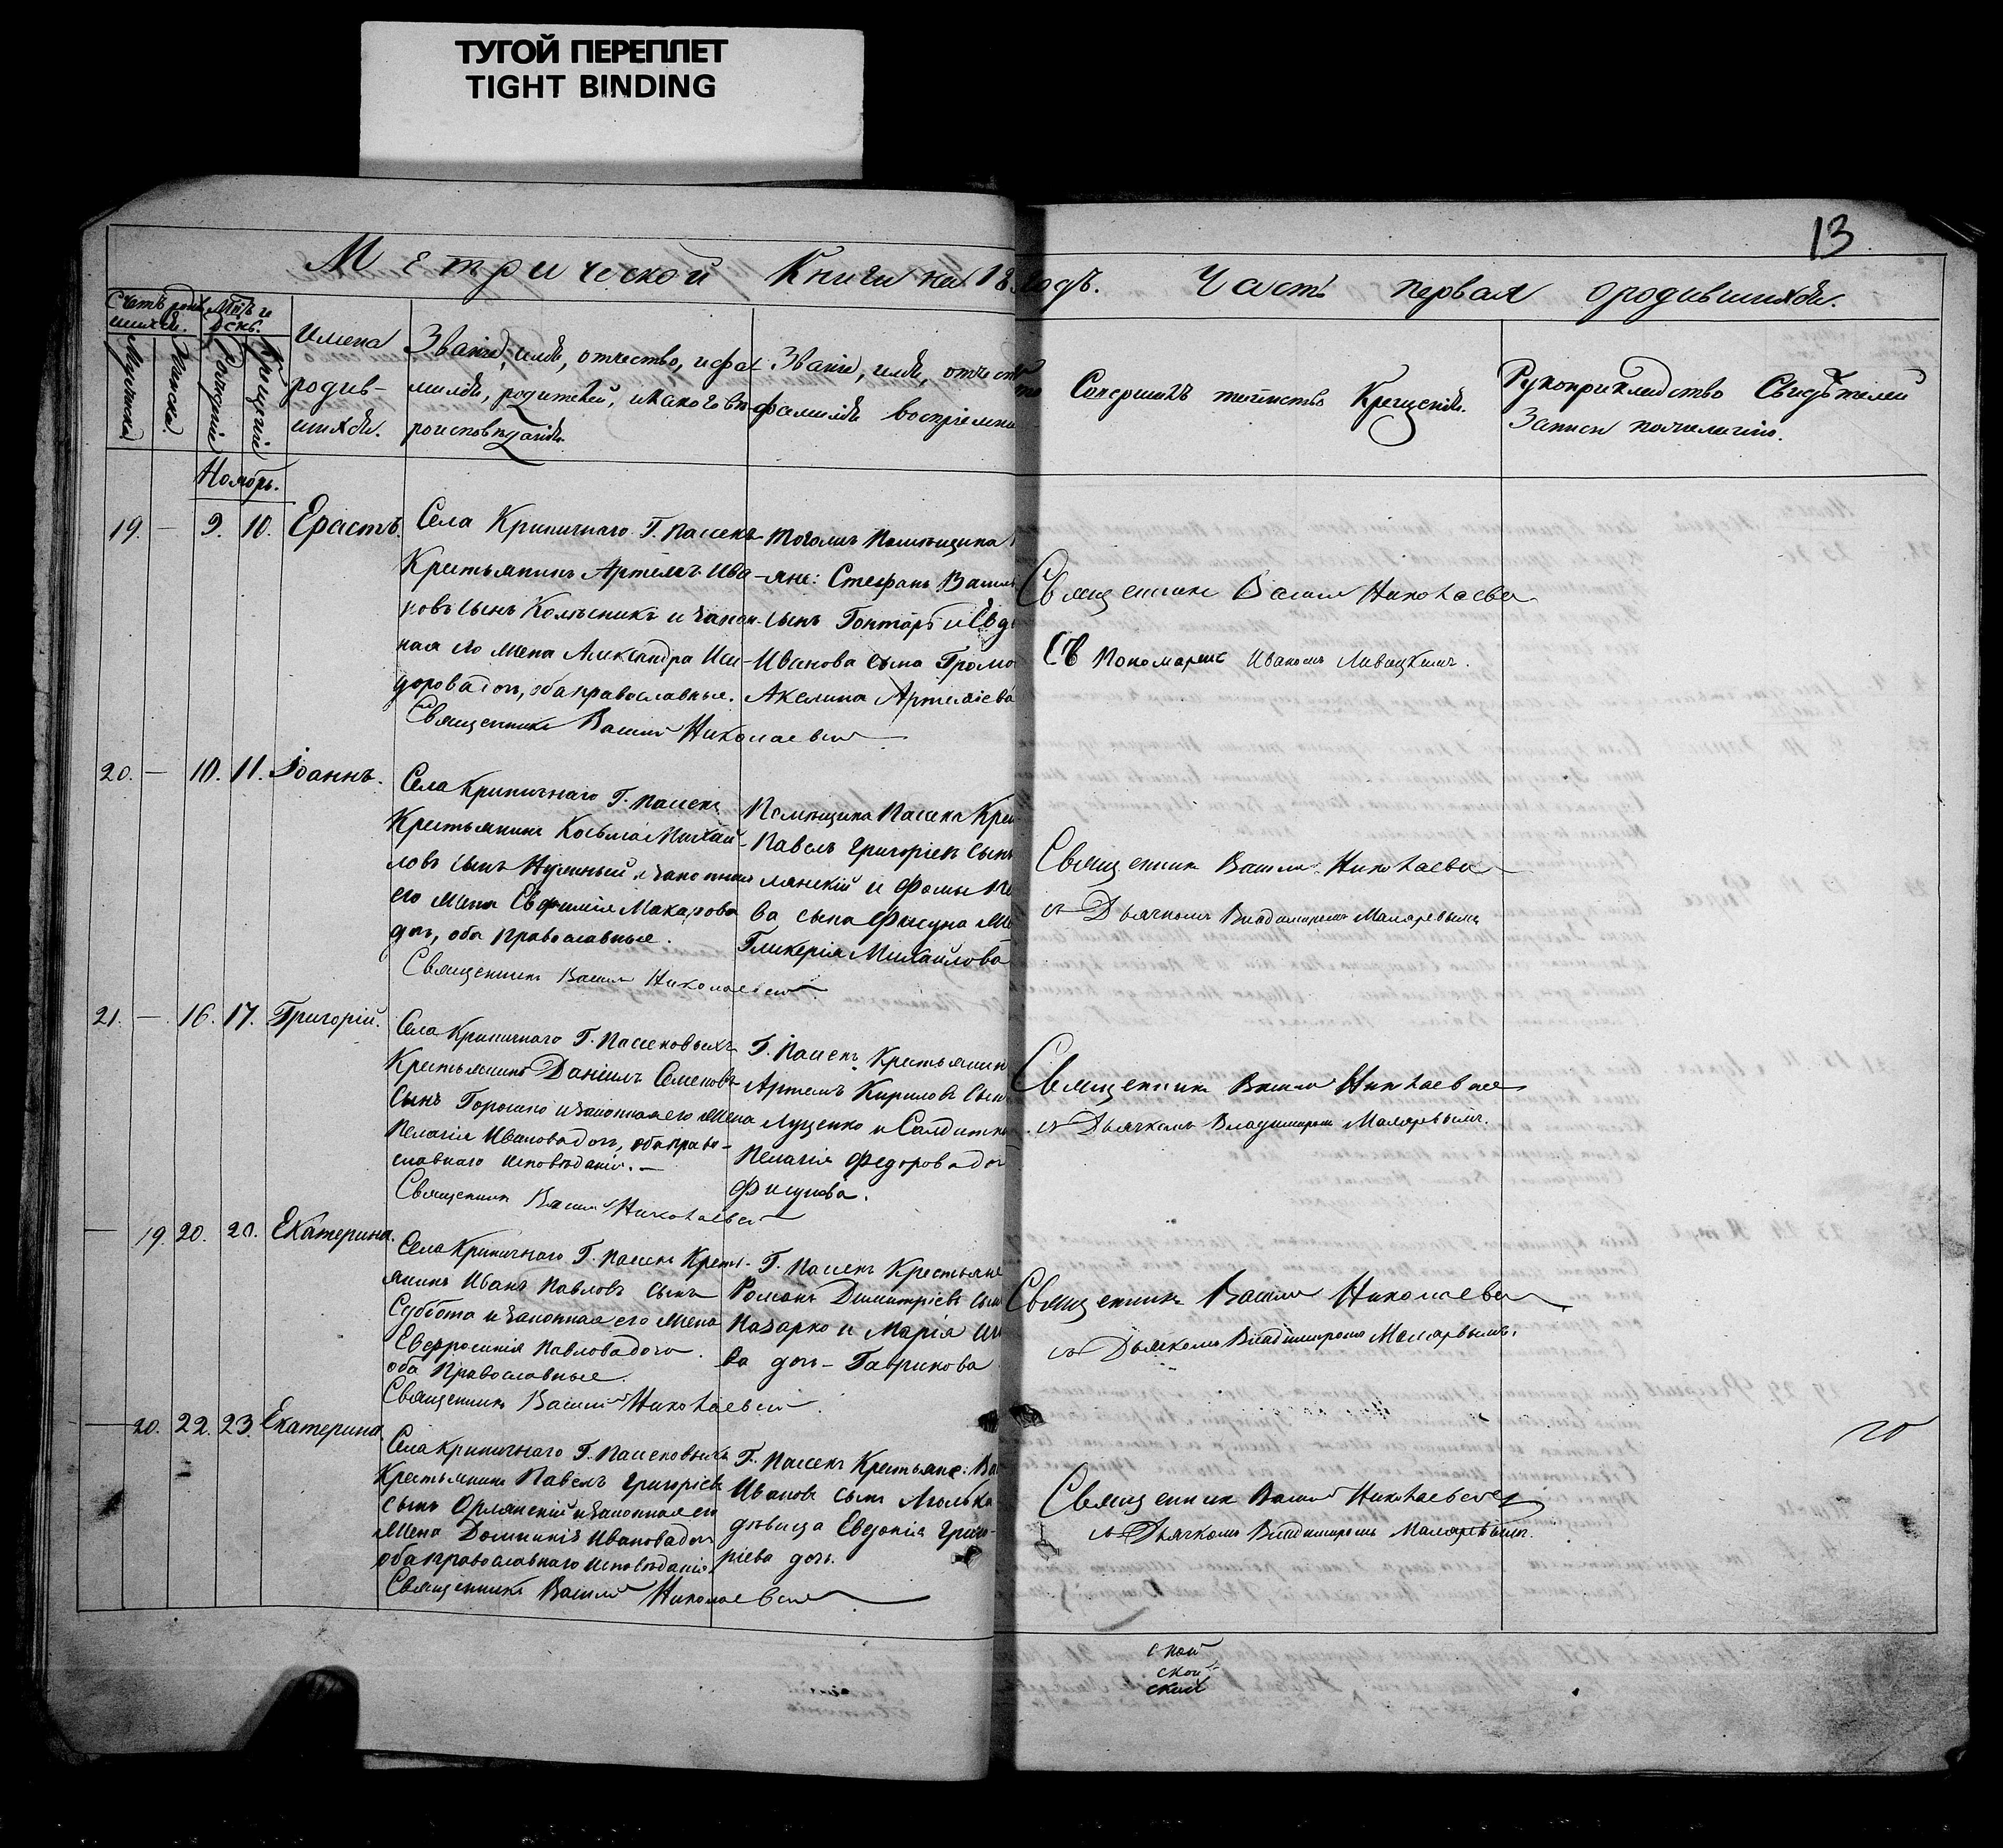 ТУГОЙ ПЕРЕПЛЕТ
TIGHT BINDING
13
Метрической Книги на 18 годъ. Часть первая о родившихся.
Счетъ родив
шихся.
Мужеска
Женска.
Мѣс. и
День.
Рожденія
Крещенія
Имена
родив-
шихся.
Званіе, имя, отчество, и фа
милія, родителей, и какого вѣ-
роисповѣданія.
Званіе, имя, отчество
фамилія воспріемни
Совершилъ таинство Крещенія.
Рукоприкладство Свидѣтелей
Записи по желанію.
Ноябрь.
19. — 9. 10. Ерастъ.
Села Криничнаго Г. Пассекъ
Крестьянинъ Артемъ Ива-
новъ сынъ Колѣсникъ и закон-
ная его жена Александра Иси-
дорова доч, оба православные.
Священникъ Василій Николаевскій
Тогожъ Помѣщика
яне: Стефанъ Васил
сынъ Гонтарь и Евд
Иванова сына Громо
Акелина Артеміева
Священникъ Василій Николаевскій
Съ Пономаремъ Иваномъ Ливицкимъ.
20. — 10. 11. Іоаннъ.
Села Криничнаго Г. Пассекъ
Крестьянинъ Косьма Михай-
ловъ сынъ Нужный и законная
его жена Евфимія Макарова
доч, оба православные.
Священникъ Василій Николаевскій
Помѣщика Пассека Кре
Павелъ Григоріев сынъ
лянскій и Фомы
ва сына Фисуна
Гликерія Михайлова
Священникъ Василій Николаевскій
съ Дьячкомъ Владимиромъ Маляревымъ
21. — 16. 17. Григорій.
Села Криничнаго Г. Пассековыхъ
Крестьянинъ Даніилъ Семеновъ
Сынъ Горошко и законная его жена
Пелагія Иванова доч, оба право-
славнаго исповѣданія. —
Священникъ Василій Николаевскій
Г. Пассекъ Крестьянин
Артемъ Кириловъ Сын
Луценко и Солдатка
Пелагія Федорова доч
Фисунова.
Священникъ Василій Николаевскій
съ Дьячкомъ Владимиромъ Маляревымъ.
— 19. 20. 20. Екатерина.
Села Криничнаго Г. Пассекъ Кресть-
янинъ Иванъ Павловъ сынъ
Суббота и законная его жена
Евфросинія Павлова доч.
оба Православные.
Священникъ Василій Николаевскій.
Г. Пассекъ Крестьяне
Романъ Димитріевъ сын
Назарко и Марія
ва доч - Гаврикова
Священникъ Василій Николаевскій
съ Дьячкомъ Владимиромъ Маляревымъ.
— 20. 22. 23. Екатерина.
Села Криничнаго Г. Пассековыхъ
Крестьянинъ Павелъ Григоріевъ
сынъ Орлянскій и законная его
жена Домникія Иванова доч
оба православнаго исповѣданія.
Священникъ Василій Николаевскій
Г. Пассекъ Крестьяне: Ва
Ивановъ сынъ Люлька
дѣвица Евдокія Григо-
ріева доч.
Священникъ Василій Николаевскій
съ Дьячкомъ Владимиромъ Маляревымъ.
ской